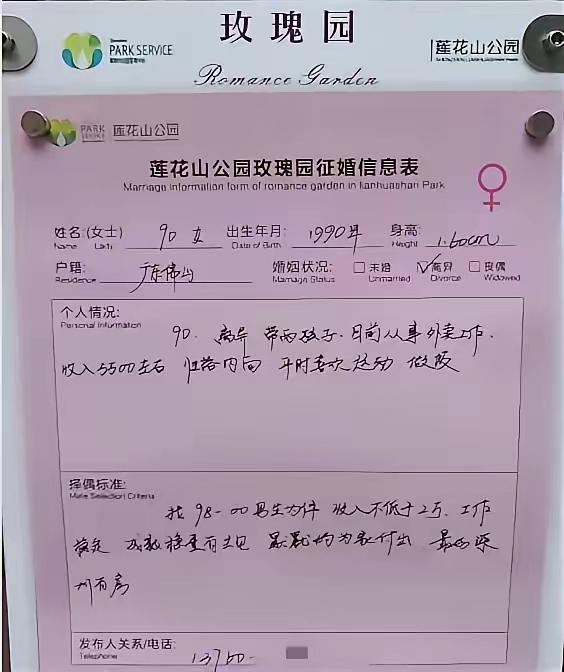 玫瑰园
PARK SERVICE
莲花山公园
Romance Garden
PARK
莲花山公园
莲花山公园玫瑰园征婚信息表
Marriage information form of romance garden in lianhuashan Park
姓名:(女士) 90 女 出生年月: 1990年 身高: 1.60cm
Name Lady Date of Birth Height
户籍: 广东佛山 婚姻状况: 未婚 离异 丧偶
Residence Marriage Status Unmarried Divorce Widowed
个人情况:
Personal Information
90. 离异 带两孩子. 目前从事外卖工作.
收入5500左右 性格内向 平时喜欢运动 做饭
择偶标准:
Mate Selection Criteria
找 98-00男生为伴 收入不低于2万. 工作
稳定 成熟稳重有主见 默默为家付出 最好深
圳有房
发布人关系/电话:
Telephone 13760-